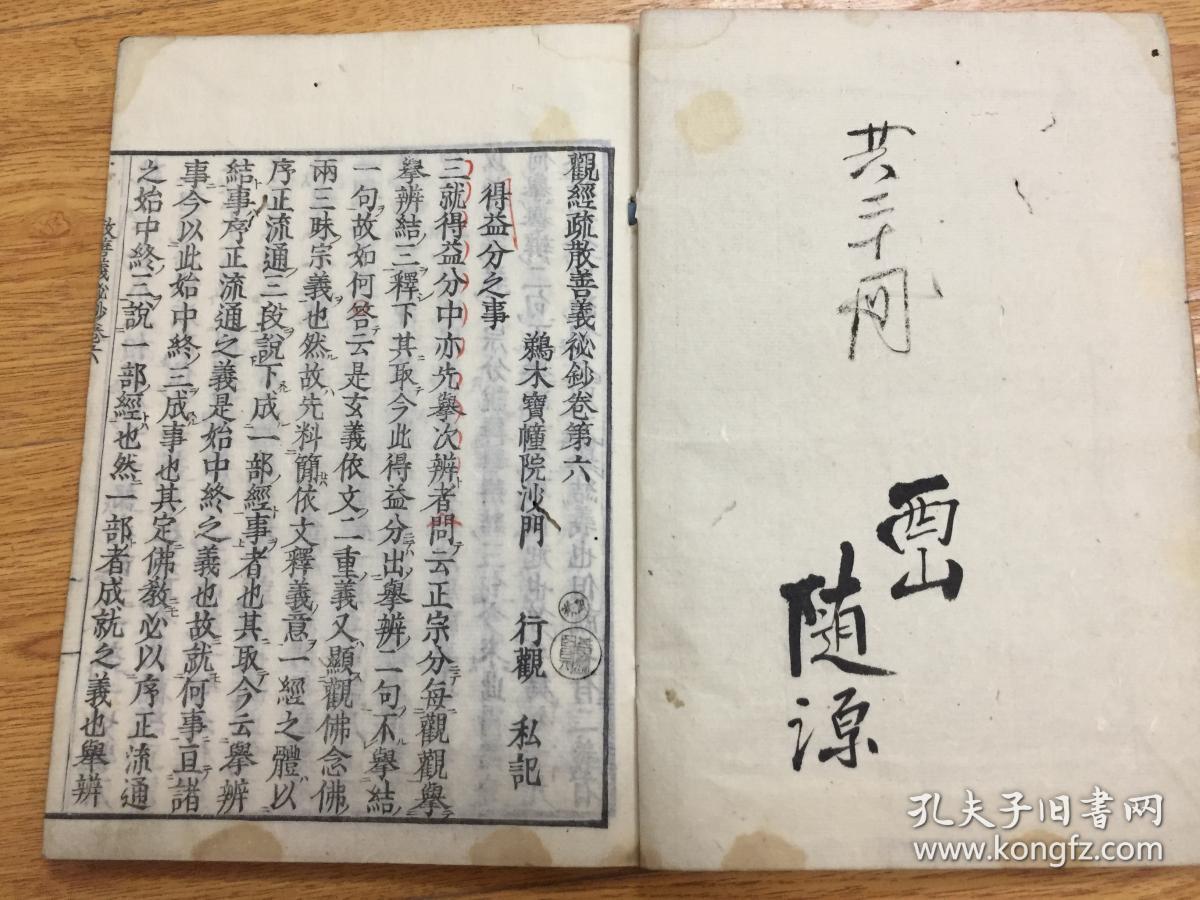 共二十冊
西山
随源
觀經疏散善義祕鈔卷第六
鵜木寶幢院沙門 行觀 私記
得益分之事
三就得益分中亦先擧次辨者問云正宗分每觀觀擧
擧辨結三釋下其取今此得益分出擧辨二句不擧結
一句故如何答云是玄義依文二重義又顯觀佛念佛
兩三昧宗義也然故先料簡依文釋義意一經之體以
序正流通三段說下成一部經事者也其取今云擧辨
結事序正流通之義是始中終之義也故就何事亘諸
事今以此始中終三成事也其定佛教必以序正流通
之始中終三說一部經也然一部者成就之義也擧辨
散善義祕鈔卷六
孔夫子旧书网
www.kongfz.com